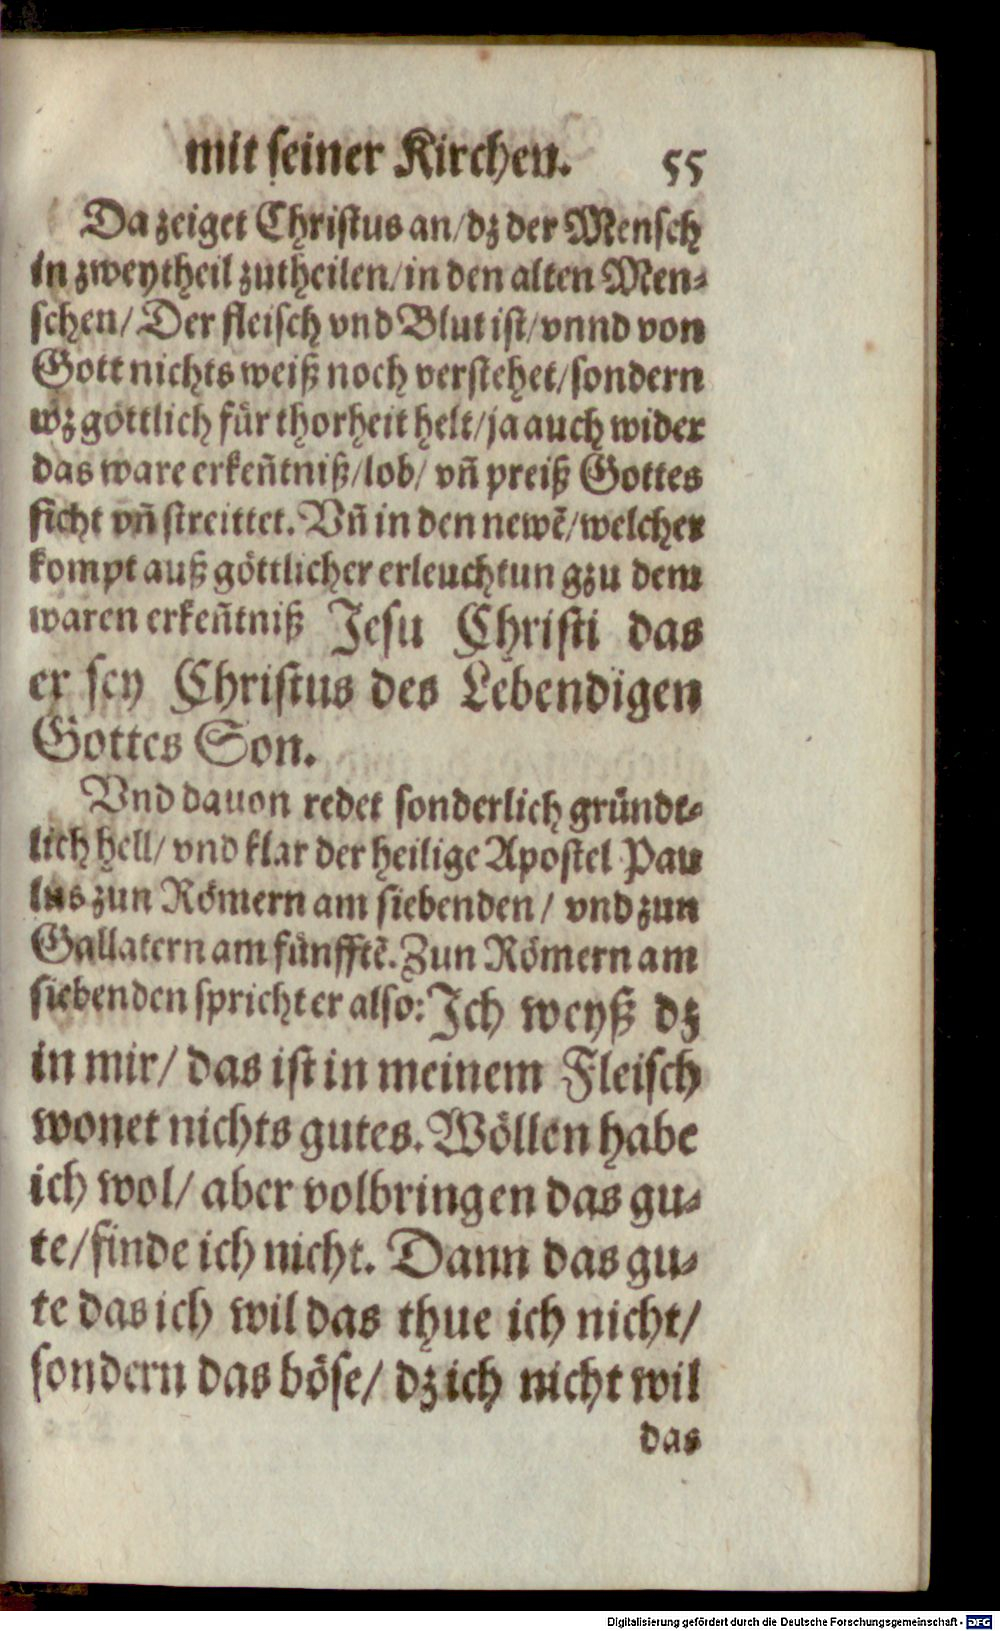 mit seiner Kirchen. 55
Da zeiget Christus an/dz der Mensch
in zweytheil zutheilen/in den alten Men-
schen/ Der fleisch vnd Blut ist/vnnd von
Gott nichts weiß noch verstehet/sondern
wz göttlich für thorheit helt/ja auch wider
das ware erkeñtniß/lob/ vñ preiß Gottes
ficht vñ streittet. Vñ in den newẽ/welcher
kompt auß göttlicher erleuchtun gzu dem
waren erkeñtniß Jesu Christi das
er sey Christus des Lebendigen
Gottes Son.
Vnd dauon redet sonderlich gründt-
lich hell/ vnd klar der heilige Apostel Pau
lus zun Römern am siebenden/ vnd zun
Gallatern am fünfftẽ. Zun Römern am
siebenden spricht er also: Ich weyß dz
in mir/ das ist in meinem Fleisch
wonet nichts gutes. Wöllen habe
ich wol/ aber volbringen das gu-
te/finde ich nicht. Dann das gu-
te das ich wil das thue ich nicht/
sondern das böse/ dz ich nicht wil
das
Digitalisierung gefördert durch die Deutsche Forschungsgemeinschaft - DFG